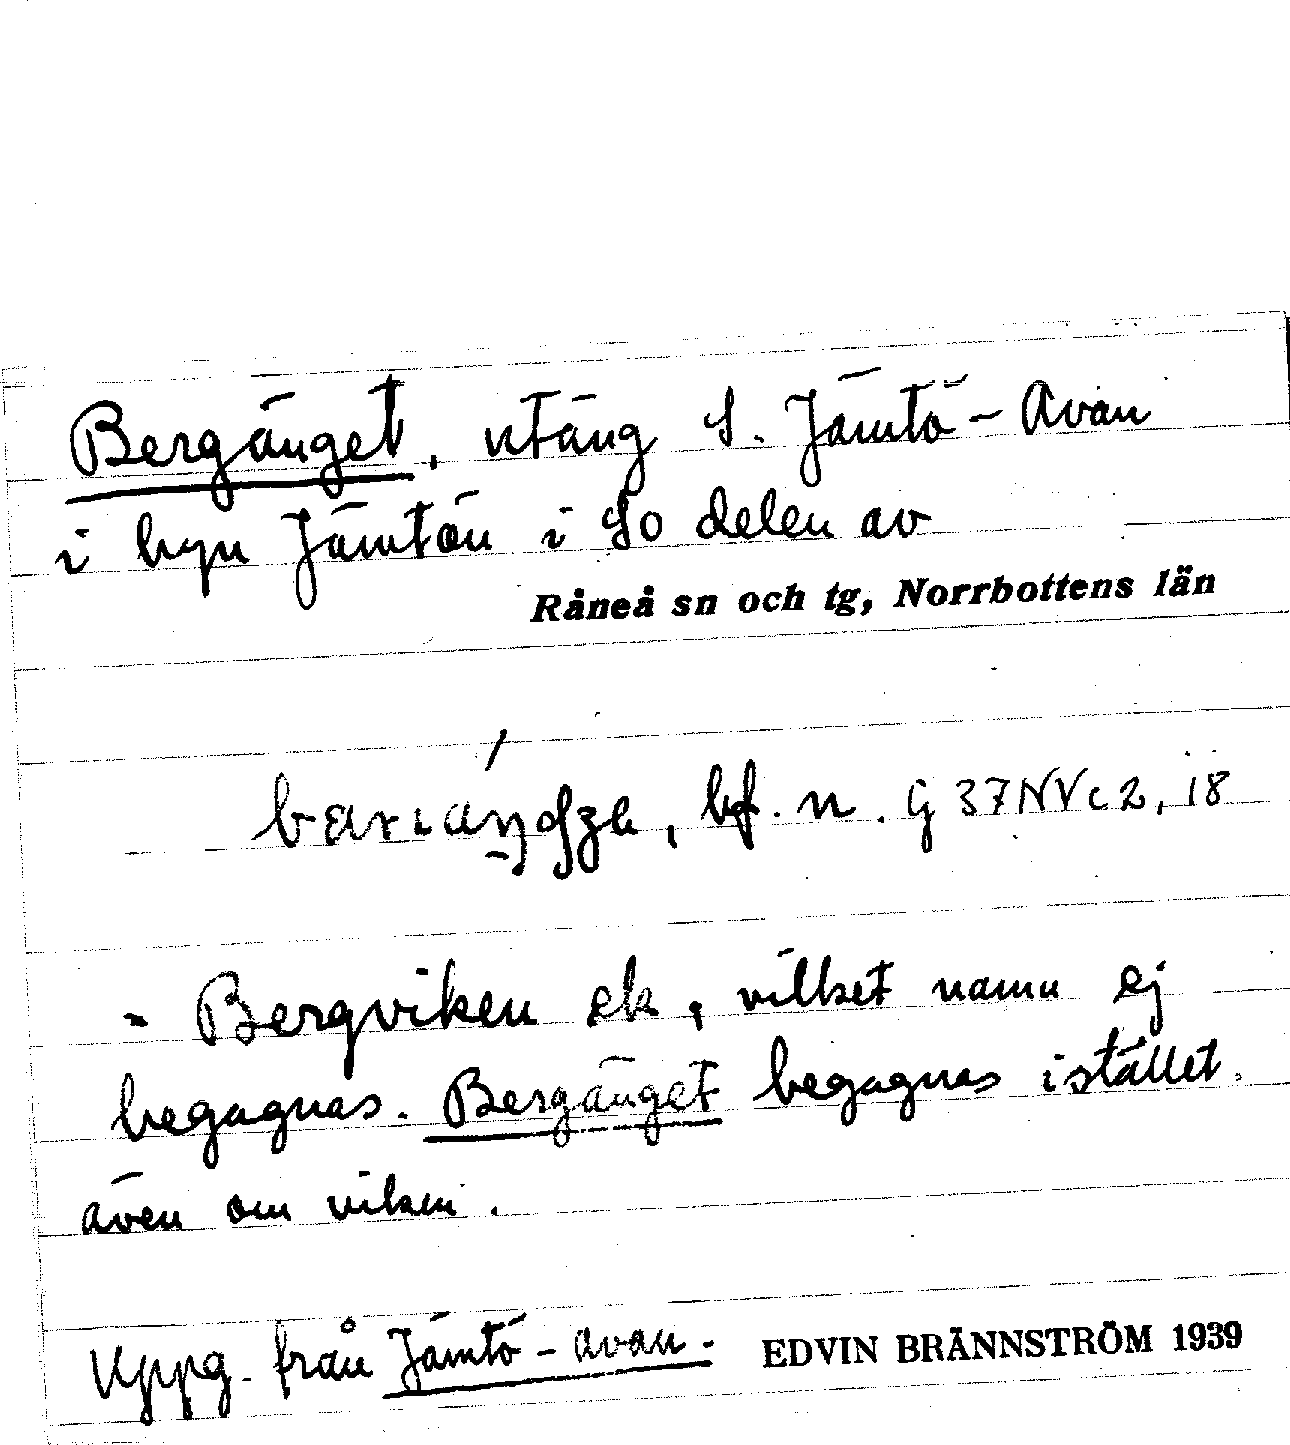 Bergänget, utäng S. Jämtö-Avan
i byn Jämtön i So delen av
Råneå sn och tg, Norrbottens län
bf. n. G 37NVc2, i8
= Bergviken ek, vilket namn ej
begagnas. Bergänget begagnas istället
även om viken.
Uppg. från Jämtö-Avan. EDVIN BRÄNNSTRÖM 1939